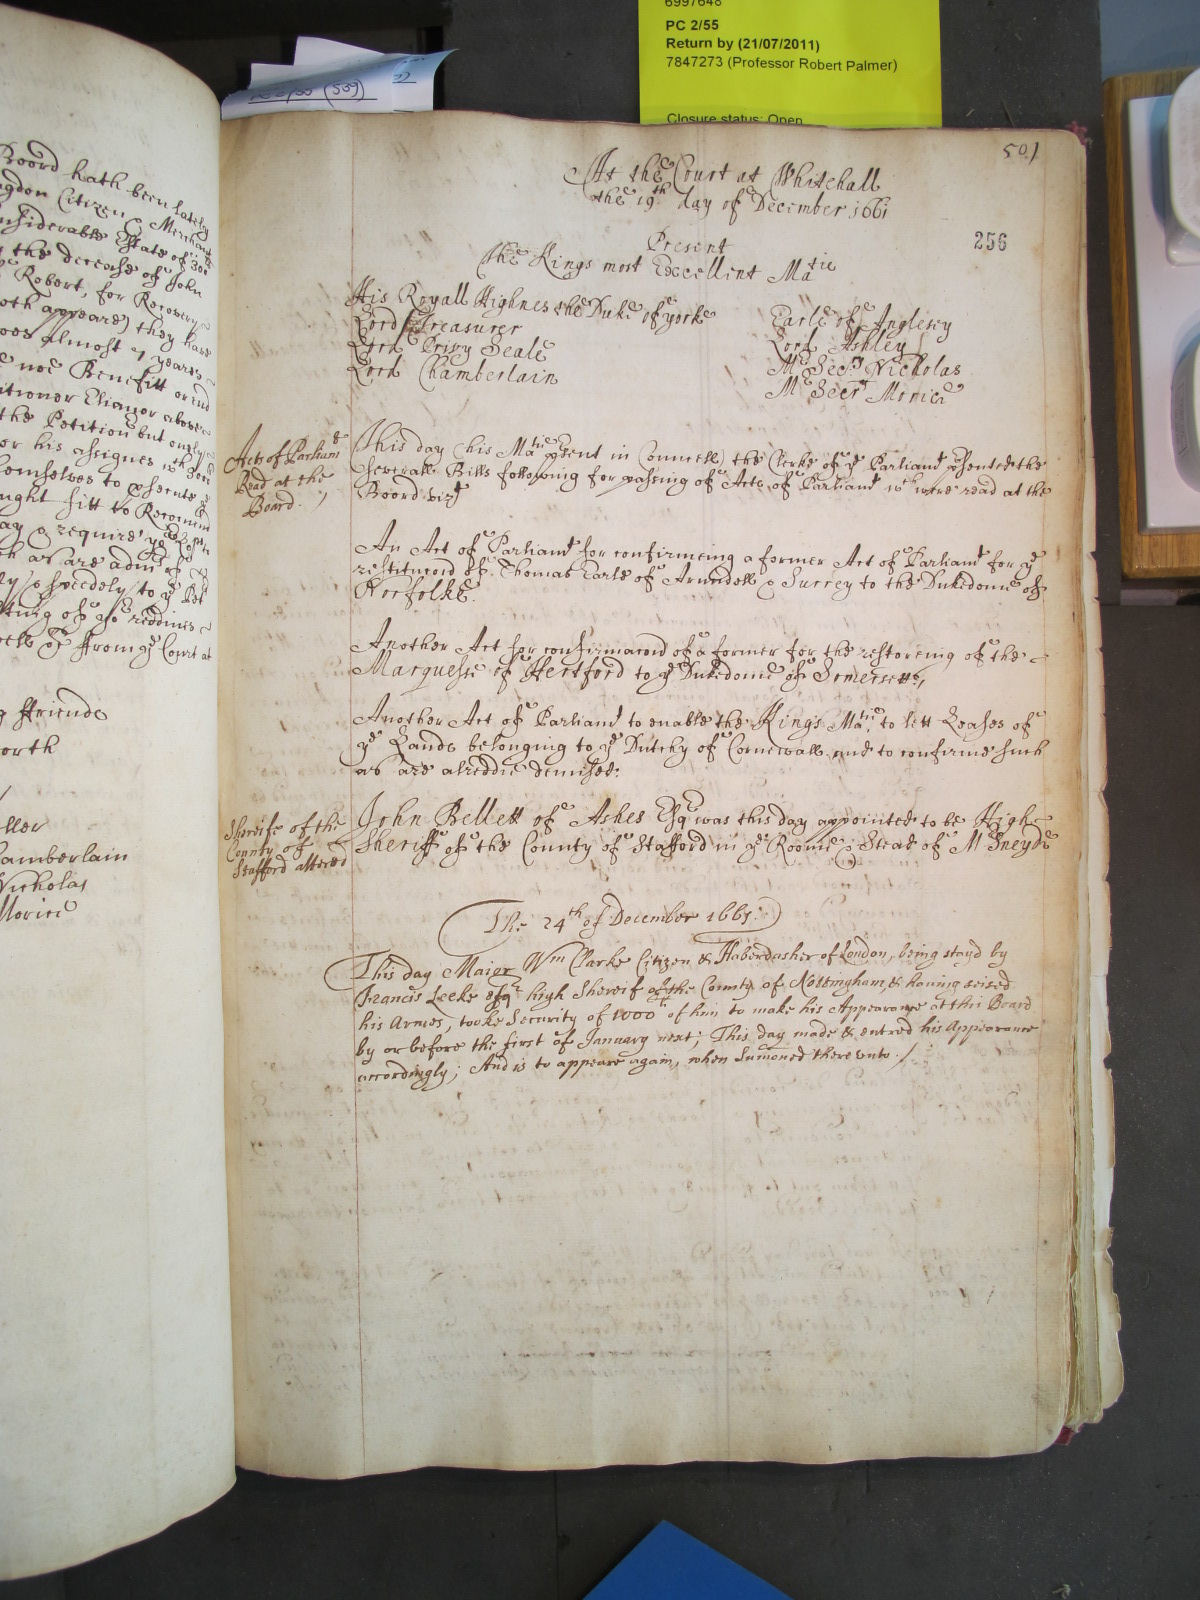 6997648
PC 2/55
Return by (21/07/2011)
7847273 (Professor Robert Palmer)
Closure status: Open
501
256
Boord hath been lately
Citizen & Merchant
Considerable Estate of
the decease of John
Robert, for Recovery
doth appeare) they have
almost 7 yeares
noe Benefitt
Elianor above
the Petition but only
or his assignes wth
themselves to psente
ought fitt to Recomend
& require
as are
& speedely to ye Pet
of yor reddines
&c ffrom ye Court at
ffriends
orth
ller
amberlain
Nicholas
Morice
At the Court at Whitehall
the 19th day of December 1661
Present
The Kings most Excellent Matie
His Royall Highnes the Duke of yorke
Lord Treasurer
Lord Privy Seale
Lord Chamberlain
Earle of Anglesey
Lord Ashley
Mr Secry Nicholas
Mr Secry Morice
Acts of Parliamt
Read at the
Board.
This day (his Matie psent in Councell) the Clerke of ye Parliamt psented the
severall Bills following for passing of Acts of Parliamt wch were read at the
Boord vizt
An Act of Parliamt for confirmeing a former Act of Parliamt for ye
restitucion of Thomas Earle of Arundell & Surrey to the Dukedome of
Norfolke.
Another Act for confirmacion of a former for the restoreing of the
Marquesse of Hertford to ye Dukedome of Somersett,
Another Act of Parliamt to enable the Kings Matie, to lett Leases of
ye Lands belonging to ye Dutchy of Cornewall and to confirme such
as are alreddie demised:
Shereife of the
County of
Stafford altered
John Bellett of Ashes Esqr was this day appointed to be High
Sheriff of the County of Stafford in ye Roome & Stead of Mr Sneyde
The 24th of December 1661:
This day Maior Wm Clarke Citizen & Haberdasher of London, being stayd by
Francis Leeke Esqr high Shereif of the County of Nottingham, & having seised
his Armes, tooke Security of 1000 li of him to make his Appearance at this Board
by or before the first of January next; This day made & entred his Appearance
accordingly; And is to appeare again, when Sumoned there unto./